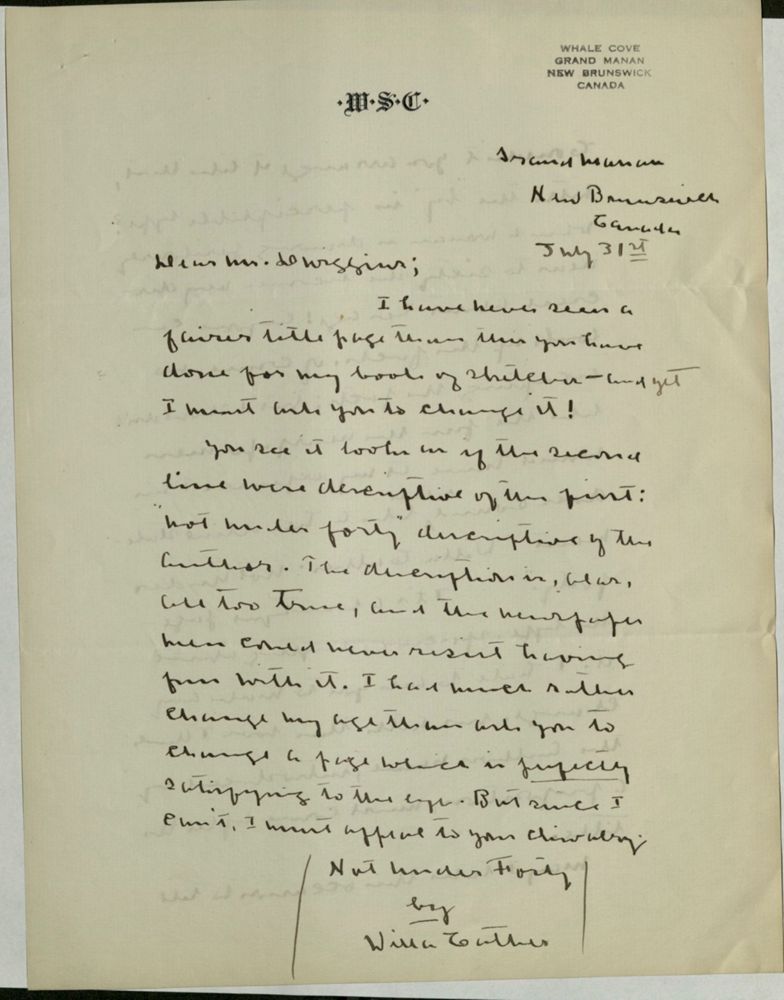 WHALE COVE
GRAND MANAN
NEW BRUNSWICK
CANADA
·W·S·C·
Grand Manan
New Brunswick
Canada
July 31st
Dear Mr. Dwiggins;
I have never seen a
fairer title page than the you have
done for my book of sketches — and yet
I must ask you to change it!
You see it looks as if the second
line were descriptive of the first:
"not under forty" descriptive of the
author. The description is, alas,
all too true, and the newspaper
men could never resist having
fun with it. I had much rather
change my age than ask you to
change a page which is perfectly
satisfying to the eye. But since I
can't, I must appeal to your chivalry.
Not Under Forty
by
Willa Cather